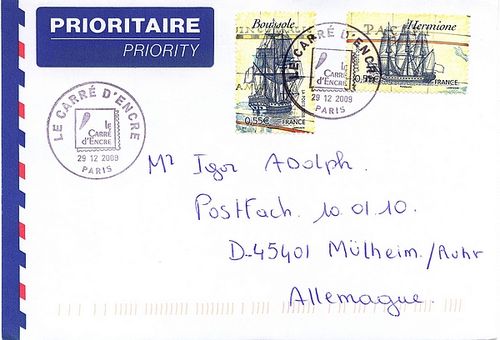 PRIORITAIRE
PRIORITY
Boussole
0,55€ FRANCE
Hermione
0,55€
FRANCE
LE CARRÉ D'ENCRE
le
Carré
d'Encre
29 12 2009
PARIS
LE CARRÉ D'ENCRE
le
Carré
d'Encre
29 12 2009
PARIS
Mr Igor ADolph.
Postfach. 10.01.10.
D-45401 Mülheim./Ruhr
Allemagne.